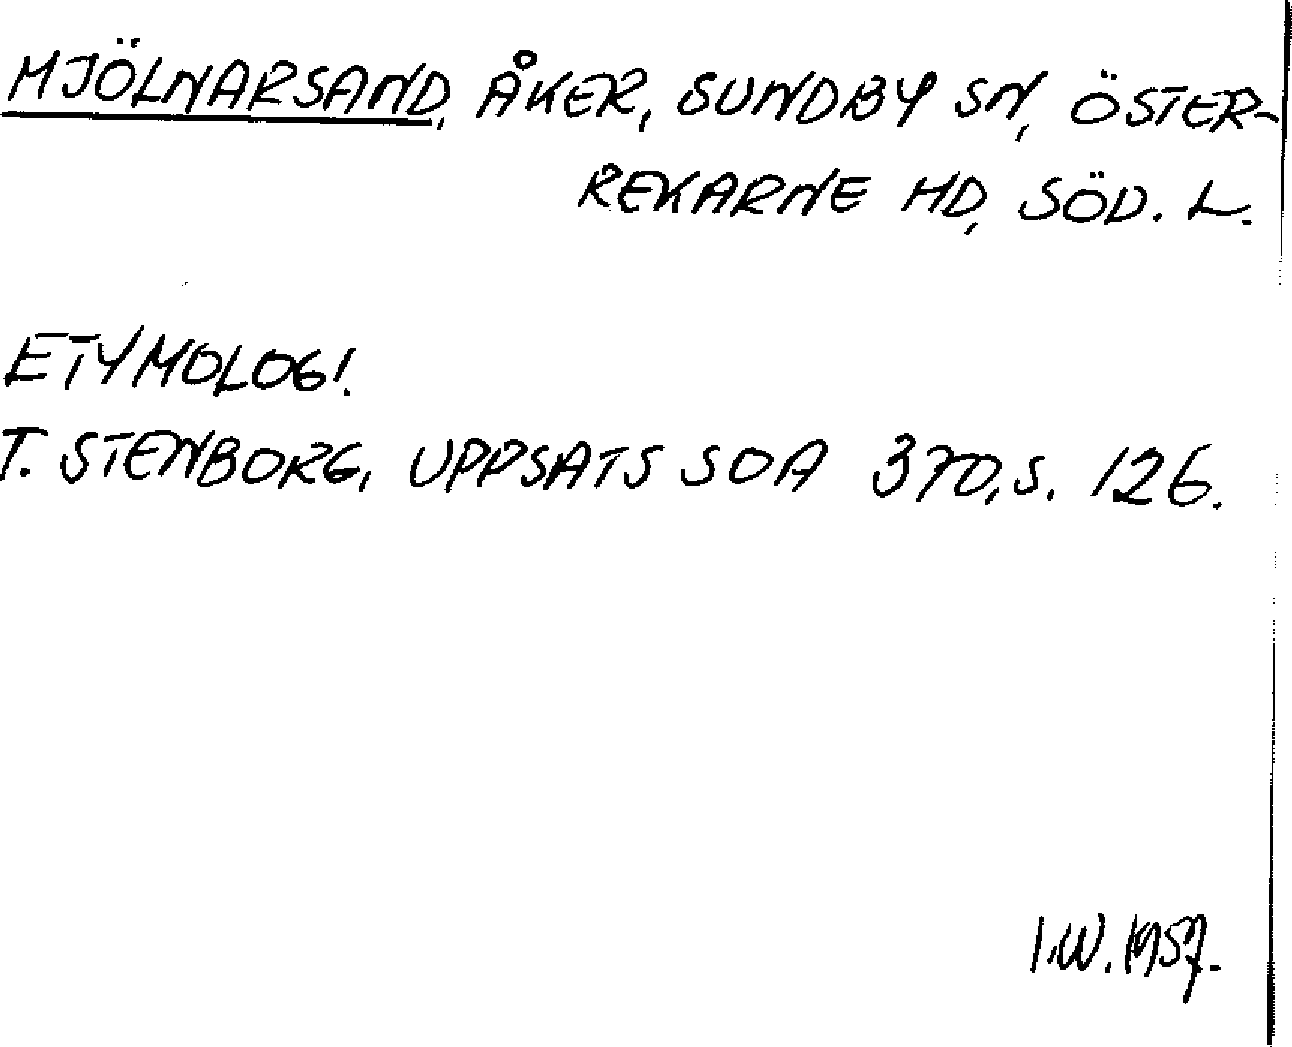 MJÖLNARSAND, ÅKER, SUNDBY SN, ÖSTER-
REKARNE HD, SÖD. L.
ETYMOLOGI.
T. STENBORG, UPPSATS SOA 370, S. 126.
I.W. 1957.